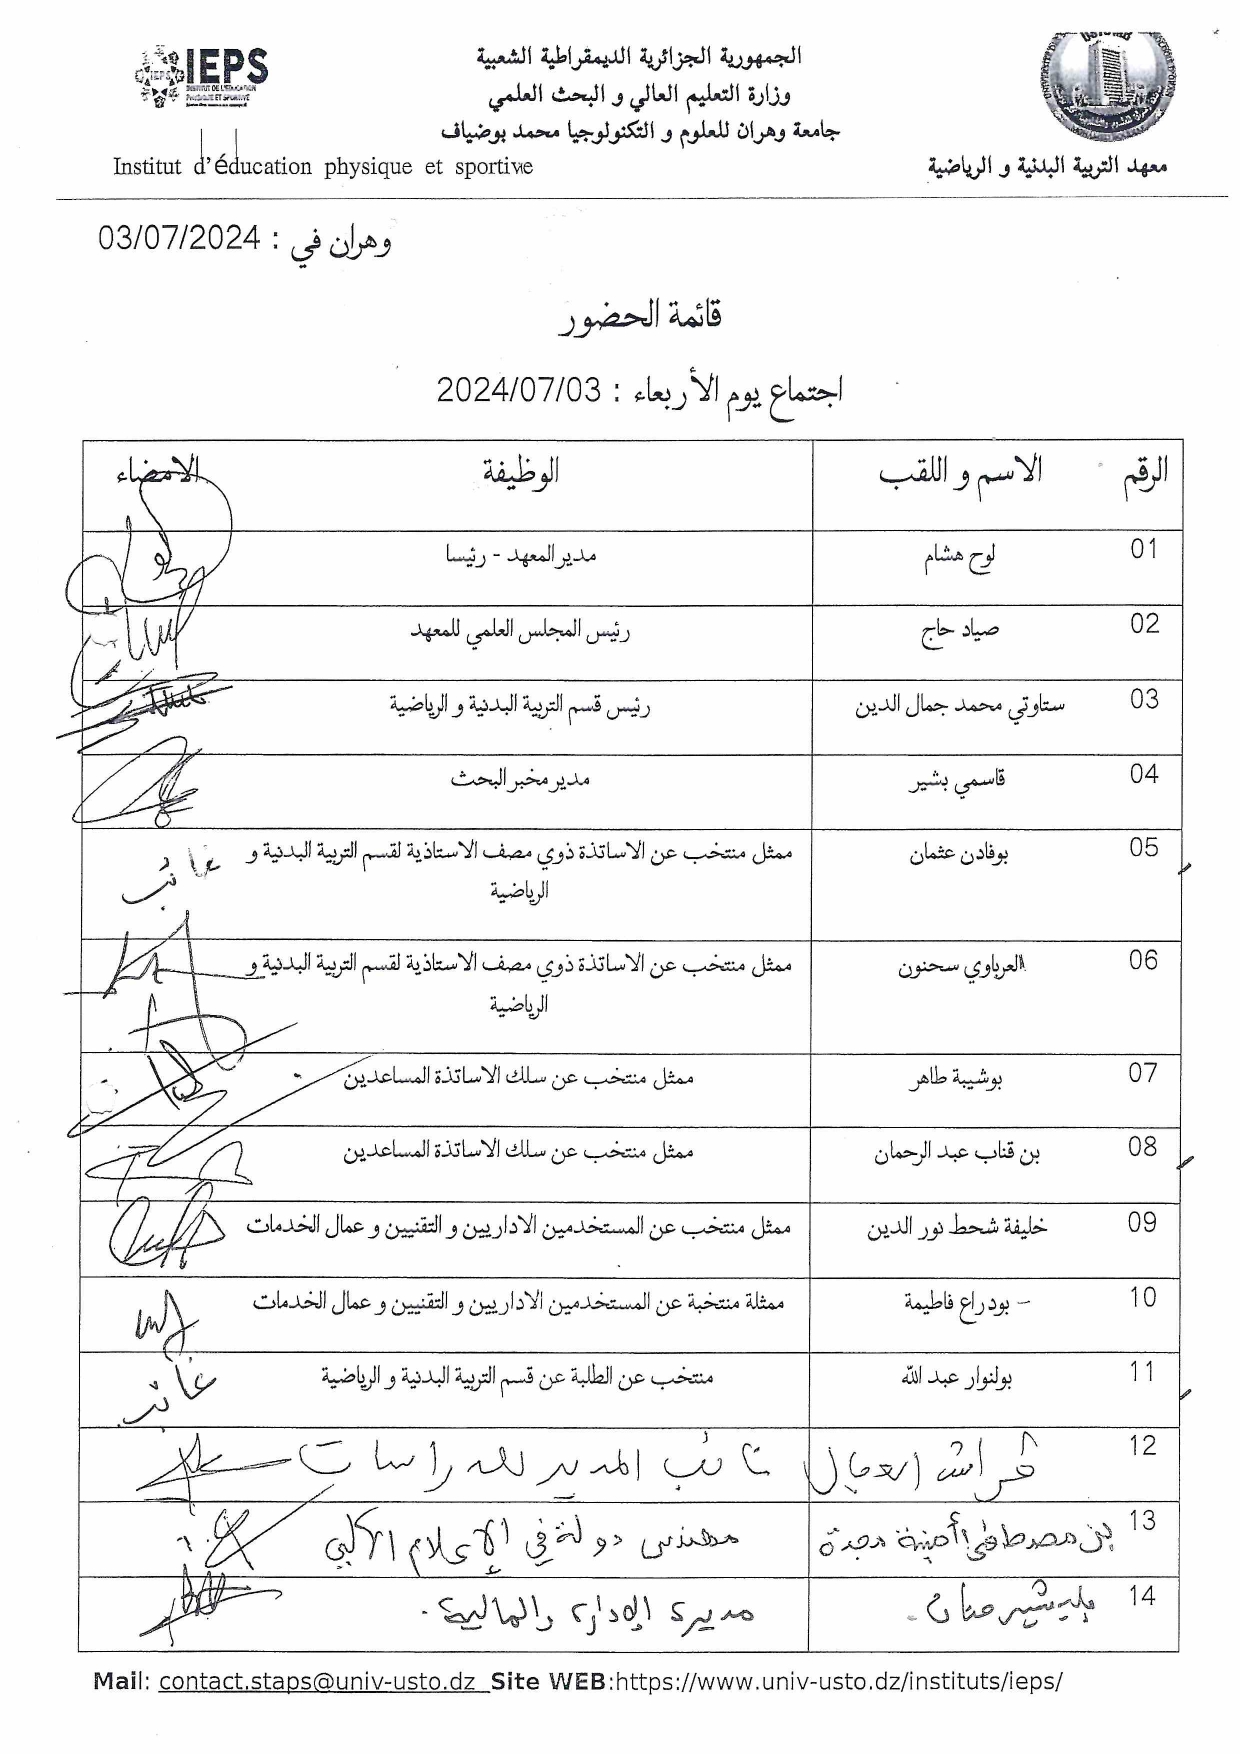 IEPS
INSTITUT DE L'EDUCATION
PHYSIQUE ET SPORTIVE
الجمهورية الجزائرية الديمقراطية الشعبية
وزارة التعليم العالي و البحث العلمي
جامعة وهران للعلوم و التكنولوجيا محمد بوضياف
Institut d'éducation physique et sportive
معهد التربية البدنية و الرياضية
وهران في : 03/07/2024
قائمة الحضور
اجتماع يوم الأربعاء : 2024/07/03
الرقم الاسم و اللقب الوظيفة الامضاء
01 لوح هشام مدير المعهد - رئيسا
02 صياد حاج رئيس المجلس العلمي للمعهد
03 ستاوتي محمد جمال الدين رئيس قسم التربية البدنية و الرياضية
04 قاسمي بشير مدير مخبر البحث
05 بوفادن عثمان ممثل منتخب عن الاساتذة ذوي مصف الاستاذية لقسم التربية البدنية و غائب
الرياضية
06 العرباوي سحنون ممثل منتخب عن الاساتذة ذوي مصف الاستاذية لقسم التربية البدنية و
الرياضية
07 بوشيبة طاهر ممثل منتخب عن سلك الاساتذة المساعدين
08 بن قناب عبد الرحمان ممثل منتخب عن سلك الاساتذة المساعدين
09 خليفة شحط نور الدين ممثل منتخب عن المستخدمين الاداريين و التقنيين و عمال الخدمات
10 – بودراع فاطيمة ممثلة منتخبة عن المستخدمين الاداريين و التقنيين و عمال الخدمات
11 بولنوار عبد الله منتخب عن الطلبة عن قسم التربية البدنية و الرياضية غائب
12 نائب المدير للدراسات
13 بن مصطفى أمينة مهندس دولة في الإعلام الآلي
14 بلبشير حنان . مديرة الإدارة والمالية .
Mail: contact.staps@univ-usto.dz Site WEB:https://www.univ-usto.dz/instituts/ieps/